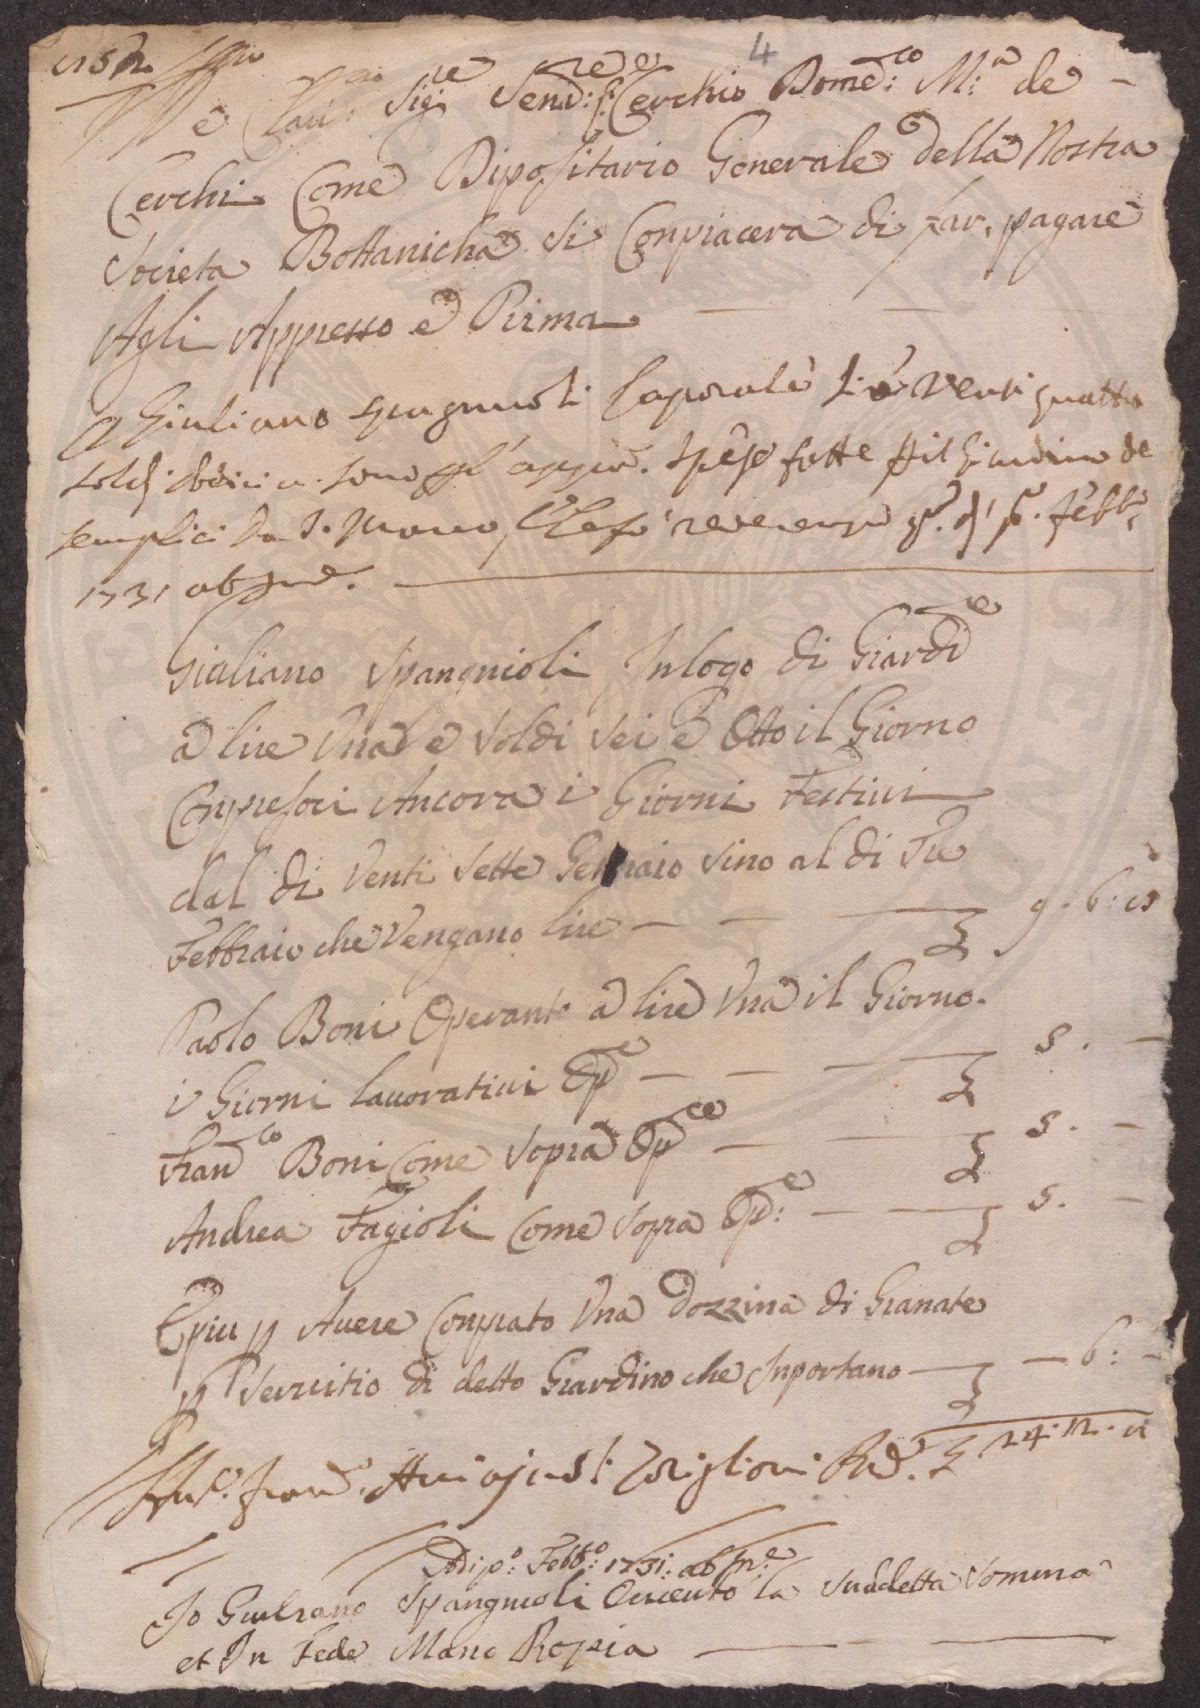 4
e Clari: Sig:re Send:re Cerchio Dome:co M:a de
Cerchi Come Dipositario Generale della Nostra
Societa Bottanicha Si Conpiacera di far, pagare
Agli Appresso e Prima
A Giuliano Spagnuoli Caporale L:e Venti quattro
soldi dodici sono appie. Spese fatte il Giardino de
semplici Da S. Marco, 1.º Febb:o
1731 ab Inc.e
Giuliano Spangnioli Inlogo di Giardi:re
a lire Una e Soldi Sei e Otto il Giorno
Conpresoci Ancora i Giorni Festiui
dal di Venti Sette Gennaio Sino al di Tre
Febbraio che Vengano lire — — £ 9 . 6 : 8
Paolo Boni Operante a lire Una il Giorno.
i Giorni lauoratiui Op:e — — £ 5 . —
Fran:co Boni Come Sopra Op:ce — £ 5 . —
Andrea Fagioli Come Sopra Op:e — £ 5 . —
E piu p Auere Conprato Una Dozzina di Granate
p Seruitio di detto Giardino che Inportano — £ — 6 : —
Fran:co £ 24 . 12 . 8
Adi p:o Febb:o 1731: ab In:e
Io Giuliano Spangnioli O riceuto la Suddetta Somma
et In Fede Mano Propia